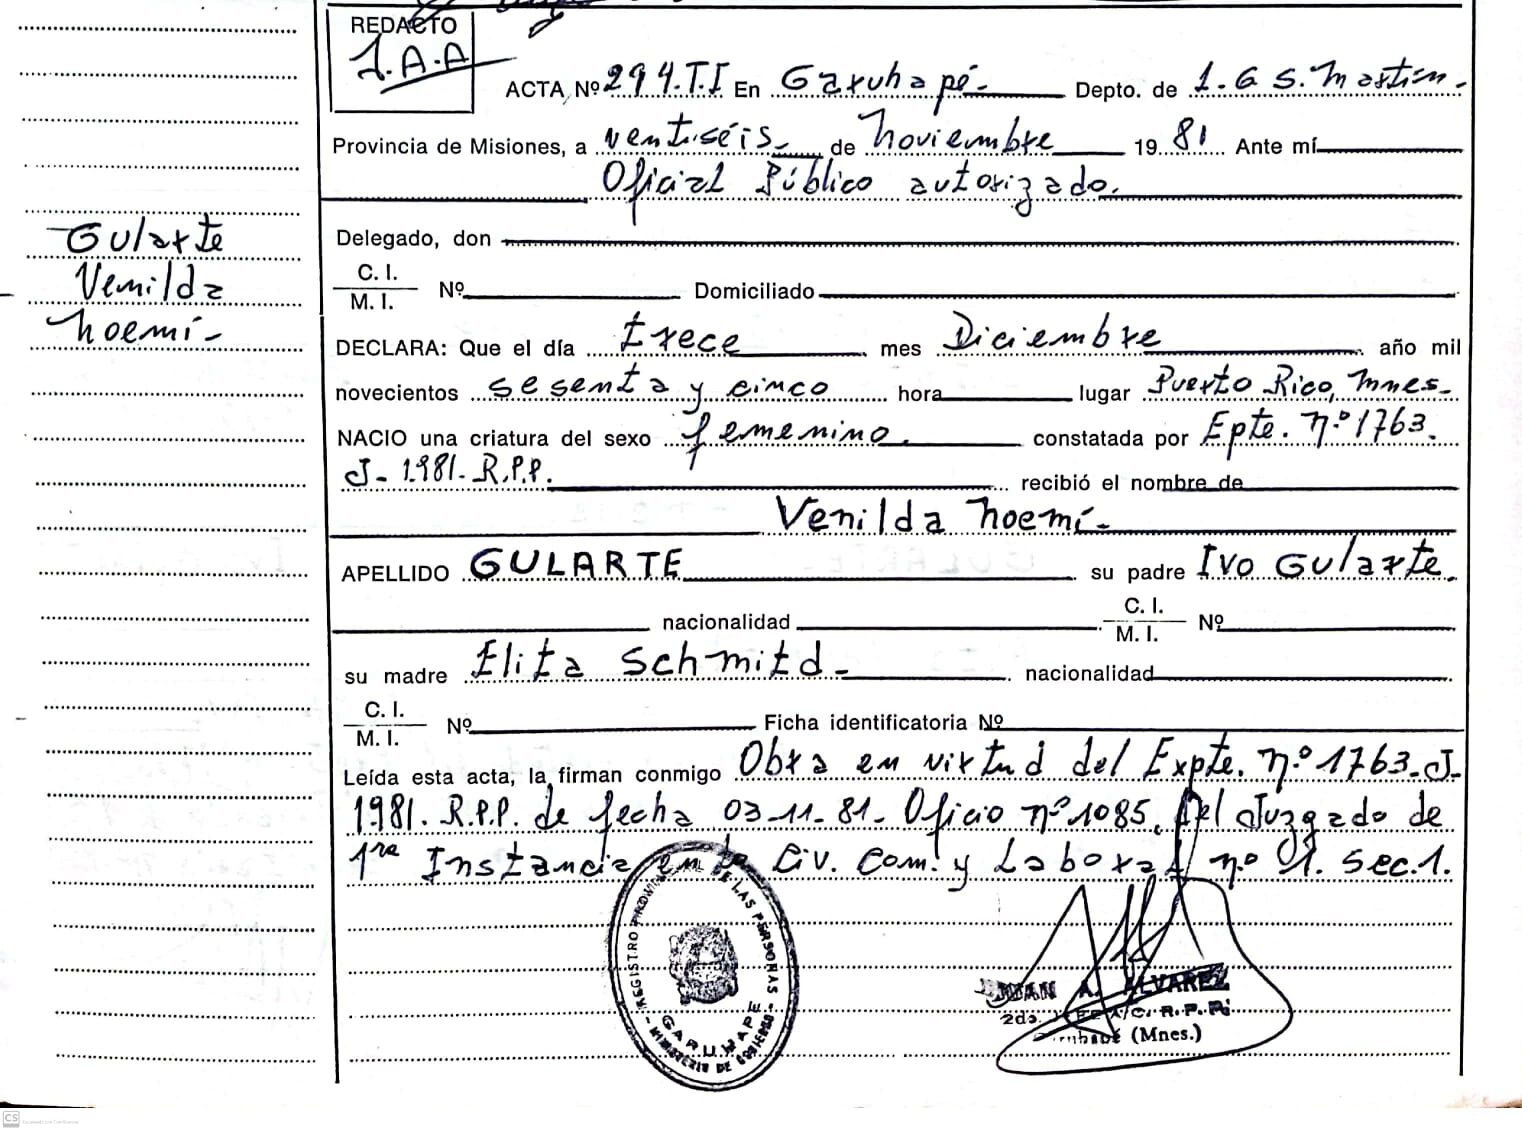 REDACTO
J.A.A
ACTA Nº 294.T.I En Garuhapé.- Depto. de L.G S. Martín.-
Provincia de Misiones, a ventiséis de Noviembre 1981. Ante mí
Oficial Público autorizado.
Gularte
Venilda
Noemí.-
Delegado, don
C. I.
M. I. Nº Domiciliado
DECLARA: Que el día trece mes Diciembre año mil
novecientos sesenta y cinco hora lugar Puerto Rico, Mnes.-
NACIO una criatura del sexo femenino. constatada por Epte. Nº 1763.
J- 1981. R.P.P. recibió el nombre de
Venilda Noemí.-
APELLIDO GULARTE su padre Ivo Gularte.
nacionalidad C. I.
M. I. Nº
su madre Elita Schmitd.- nacionalidad
C. I.
M. I. Nº Ficha identificatoria Nº
Leída esta acta, la firman conmigo Obra en virtud del Expte. Nº 1763-J-
1981. R.P.P. de fecha 03-11-81- Oficio nº 1085, del Juzgado de
1ra Instancia en lo Civ. Com. y Laboral nº 1. Sec.1.
REGISTRO PROVINCIAL DE LAS PERSONAS
GARUHAPE
MINISTERIO DE GOBIERNO
JUAN A. ALVAREZ
2do. JEFE A/C. R.P.P.
(Mnes.)
CS